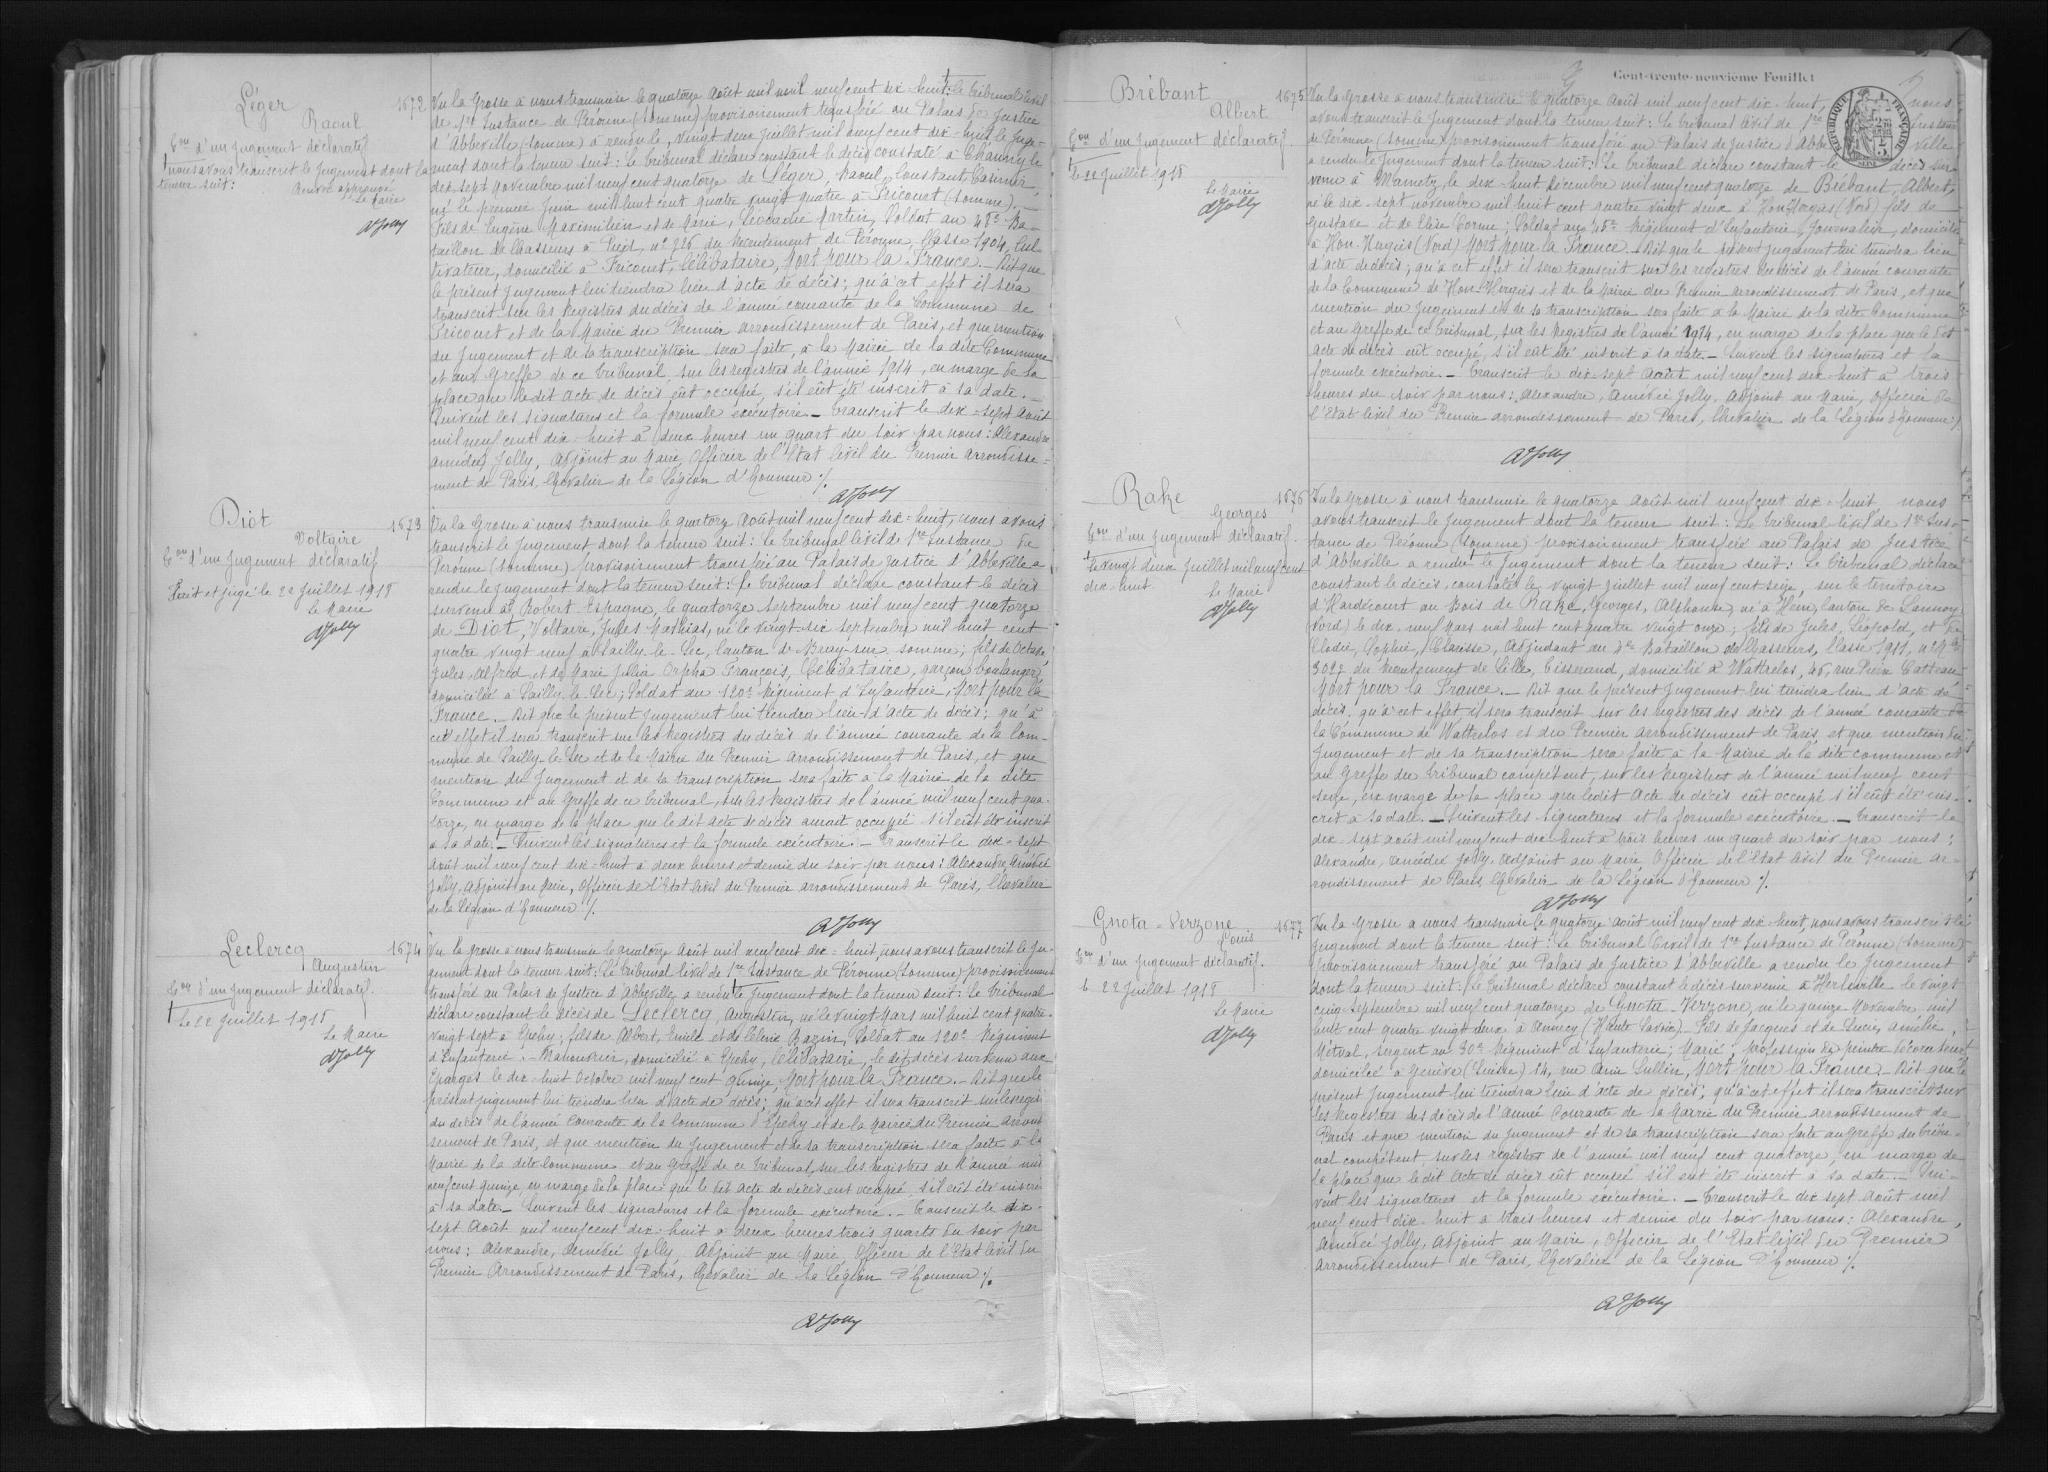 Léger
Raoul
1672
Con d'un jugement déclaratif
nous avons transcrit le jugement dont la
teneur suit :
Le Maire
AJolly
Vu la Grosse à nous transmise le quatorze août mil neuf cent dix-huit, le tribunal Civil
de 1re Instance de Péronne (Somme) provisoirement transféré au Palais de Justice
d'Abbeville (Somme) a rendu le, vingt deux juillet mil neuf cent dix-huit le juge-
ment dont la teneur suit : le tribunal déclare constant le décès constaté à Chauny le
dix sept novembre mil neuf cent quatorze de Léger, Raoul, Constant, Casimir,
né le premier Juin mil huit cent quatre vingt quatre à Fricourt (Somme),
fils de Eugène Maximilien et de Marie, Léocadie Martin, Soldat au 48e Ba-
taillon de Chasseurs à Pied, no 726 du recrutement de Péronne, Classe 1904, Cul-
tivateur, domicilié à Fricourt, Célibataire, Mort pour la France. — Dit que
le présent jugement lui tiendra lieu d'acte de décès ; qu'à cet effet il sera
transcrit sur les registres du décès de l'année courante de la Commune de
Fricourt et de la Mairie du Premier arrondissement de Paris, et que mention
du jugement et de sa transcription sera faite, à la Mairie de la dite Commune
et au Greffe de ce tribunal, sur les registres de l'année 1914, en marge de la
place que ledit acte de décès eût occupée, s'il eût été inscrit à sa date. —
Suivent les signatures et la formule exécutoire — Transcrit le dix-sept août
mil neuf cent dix-huit à deux heures un quart du soir par nous : Alexandre
Amédée Jolly, Adjoint au Maire, Officier de l'Etat Civil du Premier arrondisse-
ment de Paris, Chevalier de la Légion d'Honneur ./.
AJolly
Diot
Voltaire
1673
Con d'un jugement déclaratif
Ecrit et jugé le 22 Juillet 1918
Le Maire
AJolly
Vu la Grosse à nous transmise le quatorze août mil neuf cent dix-huit, nous avons
transcrit le jugement dont la teneur suit : Le tribunal Civil de 1re Instance de
Péronne (Somme) provisoirement transféré au Palais de Justice d'Abbeville a
rendu le jugement dont la teneur suit : Le tribunal déclare constant le décès
survenu à Robert-Espagne, le quatorze Septembre mil neuf cent quatorze
de Diot, Voltaire, Jules Mathias, né le vingt-six septembre mil huit cent
quatre vingt neuf à Sailly-le-Sec, Canton de Bray-sur-Somme ; fils de Octave
Jules, Alfred et de Marie Julia Orpha François, Célibataire, garçon boulanger,
domicilié à Sailly-le-Sec ; Soldat au 120e Régiment d'Infanterie, Mort pour la
France. — Dit que le présent jugement lui tiendra lieu d'acte de décès ; qu'à
cet effet il sera transcrit sur les Registres du décès de l'année courante de la Com-
mune de Sailly-le-Sec et de la Mairie du Premier arrondissement de Paris, et que
mention du jugement et de sa transcription sera faite à la Mairie de la dite
Commune et au Greffe de ce tribunal, sur les Registres de l'année mil neuf cent qua-
torze, en marge de la place que le dit acte de décès aurait occupée s'il eût été inscrit
à sa date. — Suivent les signatures et la formule exécutoire. — Transcrit le dix-sept
août mil neuf cent dix-huit à deux heures et demie du soir par nous : Alexandre, Amédée
Jolly, adjoint au Maire, Officier de l'Etat Civil du Premier arrondissement de Paris, Chevalier
de la Légion d'Honneur ./.
AJolly
Leclercq
Augustin
1674
Con d'un jugement déclaratif.
Le 22 Juillet 1918
Le Maire
AJolly
Vu la grosse à nous transmise le quatorze août mil neuf cent dix-huit nous avons transcrit le ju-
gement dont la teneur suit : Le tribunal Civil de 1re Instance de Péronne (Somme) provisoirement
transféré au Palais de Justice d'Abbeville, a rendu le jugement dont la teneur suit : Le tribunal
déclare constant le décès de Leclercq, Augustin, né le vingt Mars mil huit cent quatre-
vingt sept à Epehy ; fils de Albert, Emile et de Célénie Bazin, Soldat au 120e Régiment
d'Infanterie : domicilié à Epehy, Célibataire, le dit décès survenu aux
Eparges le dix-huit octobre mil neuf cent quinze Mort pour la France. — Dit que le
présent jugement lui tiendra lieu d'acte de décès ; qu'à cet effet il sera transcrit sur les regis-
du décès de l'année courante de la Commune d'Epehy et de la Mairie du Premier arrondis-
sement de Paris, et que mention du jugement et de sa transcription sera faite à la
Mairie de la dite Commune et au Greffe de ce tribunal, sur les Registres de l'année mil
neuf cent quinze, en marge de la place que le dit acte de décès eut occupée, s'il eût été inscrit
à sa date. — Suivent les signatures et la formule exécutoire. — Transcrit le dix-
sept août mil neuf cent dix-huit à deux heures trois quarts du soir par
nous : Alexandre, Amédée Jolly, Adjoint au Maire, Officier de l'Etat Civil du
Premier Arrondissement de Paris, Chevalier de la Légion d'Honneur ./.
AJolly
Cent-trente-neuvième Feuillet
RÉPUBLIQUE FRANÇAISE
SEINE
Brébant
Albert
1675
Con d'un jugement déclaratif.
Le 22 Juillet 1918
Le Maire
AJolly
Vu la Grosse à nous transmise le quatorze août mil neuf cent dix-huit, nous
avons transcrit le jugement dont la teneur suit : Le tribunal Civil de 1re Instance
de Péronne (Somme) provisoirement transféré au Palais de Justice d'Abbeville
a rendu le jugement dont la teneur suit : Le tribunal déclare constant le décès sur-
venu à Mametz, le dix-huit Décembre mil neuf cent quatorze de Brébant, Albert,
né le dix-sept novembre mil huit cent quatre vingt deux à Hon-Hergies (Nord) fils de
Gustave et de Elise Corme ; Soldat au 45e Régiment d'Infanterie, Journalier, domicilié
à Hon-Hergies (Nord) Mort pour la France — Dit que le présent jugement lui tiendra lieu
d'acte de décès ; qu'à cet effet il sera transcrit sur les registres des décès de l'année courante
de la Commune de Hon-Hergies et de la Mairie du Premier arrondissement de Paris, et que
mention du jugement et de sa transcription sera faite à la Mairie de la dite Commune
et au Greffe de ce tribunal, sur les Registres de l'année 1914, en marge de la place que le dit
acte de décès eût occupée, s'il eût été inscrit à sa date. — Suivent les signatures et la
formule exécutoire. — Transcrit le dix-sept août mil neuf cent dix-huit à trois
heures du soir par nous : Alexandre, Amédée Jolly, Adjoint au Maire, Officier de
l'Etat Civil du Premier arrondissement de Paris, Chevalier de la Légion d'Honneur ./.
AJolly
Rake
Georges
1676
Con d'un jugement déclaratif.
le vingt deux Juillet mil neuf cent
dix-huit
Le Maire
AJolly
Vu la Grosse à nous transmise le quatorze août mil neuf cent dix-huit, nous
avons transcrit le jugement dont la teneur suit : Le tribunal Civil de 1re Ins-
tance de Péronne (Somme) provisoirement transféré au Palais de Justice
d'Abbeville a rendu le jugement dont la teneur suit : Le tribunal déclare
constant le décès, constaté le vingt juillet mil neuf cent seize, sur le territoire
d'Hardecourt au Bois de Rake, Georges, Alphonse, né à Hem, Canton de Lannoy
(Nord) le dix-neuf Mars mil huit cent quatre vingt onze ; fils de Jules, Léopold, et de
Elodie, Sophie, Clarisse, Adjudant au 2e Bataillon de Chasseurs, Classe 1911, no Mle
3022 du recrutement de Lille, tisserand, domicilié à Wattrelos, 46, rue Pierre Catteau
Mort pour la France. — Dit que le présent jugement lui tiendra lieu d'acte de
décès, qu'à cet effet il sera transcrit sur les registres des décès de l'année courante de
la Commune de Wattrelos et du Premier arrondissement de Paris, et que mention du
jugement et de sa transcription sera faite à la Mairie de la dite commune et
au Greffe du tribunal compétent, sur les registres de l'année mil neuf cent
seize, en marge de la place que ledit acte de décès eût occupée s'il eût été ins-
crit à sa date. — Suivent les signatures et la formule exécutoire. — Transcrit le
dix-sept août mil neuf cent dix-huit à trois heures un quart du soir par nous :
Alexandre, Amédée Jolly, Adjoint au Maire, Officier de l'Etat Civil du Premier ar-
rondissement de Paris, Chevalier de la Légion d'Honneur ./.
AJolly
Gnota-Verzone
Louis
1677
Con d'un jugement déclaratif.
le 22 Juillet 1918
Le Maire
AJolly
Vu la Grosse à nous transmise le quatorze août mil neuf cent dix-huit, nous avons transcrit le
jugement dont la teneur suit : Le tribunal Civil de 1re Instance de Péronne (Somme)
provisoirement transféré au Palais de Justice d'Abbeville a rendu le jugement
dont la teneur suit : Le tribunal déclare constant le décès survenu à Herleville le vingt
cinq septembre mil neuf cent quatorze de Gnota-Verzone, né le quinze Novembre mil
huit cent quatre vingt deux à Annecy (Haute Savoie). Fils de Jacques et de Lucie, Amélie,
Métral, Sergent au 30e Régiment d'Infanterie ; Marié, profession de peintre décorateur,
domicilié à Genève (Suisse) 14, rue Ami Lullin, Mort pour la France — Dit que le
présent jugement lui tiendra lieu d'acte de décès ; qu'à cet effet il sera transcrit sur
les Registres des décès de l'année courante de la Mairie du Premier arrondissement de
Paris et que mention du jugement et de sa transcription sera faite au Greffe du tribu-
nal compétent, sur les registres de l'année mil neuf cent quatorze, en marge de
la place que le dit acte de décès eût occupée s'il eut été inscrit à sa date. — Sui-
vent les signatures et la formule exécutoire. — Transcrit le dix sept août mil
neuf cent dix-huit à trois heures et demie du soir par nous : Alexandre,
Amédée Jolly, Adjoint au Maire, Officier de l'Etat Civil du Premier
arrondissement de Paris, Chevalier de la Légion d'Honneur ./.
AJolly